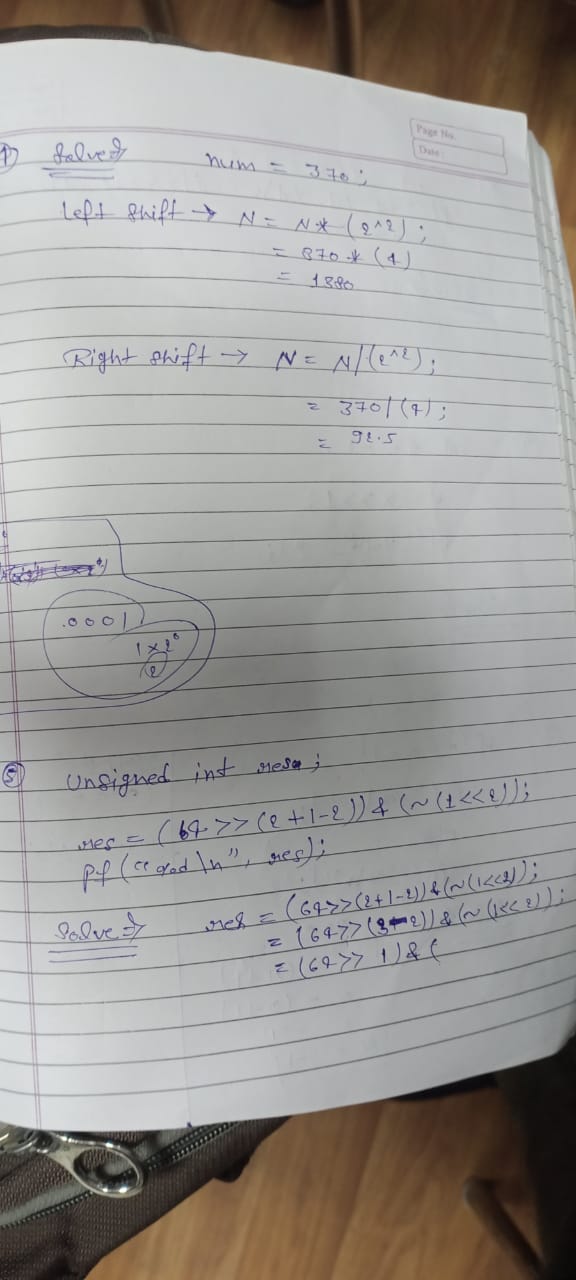 Page No.
Date:
Solve⇒ num = 370;
Left shift → N = N* (2^2);
= 370 * (4)
= 1380
Right shift → N = N/(2^2);
= 370/(4);
= 92.5
.0001
1 x 2°
2
⑤ Unsigned int res;
res = (64 >> (2+1-2)) & (~(1<<2));
pf ("%d\n", res);
Solve⇒ res = (64>>(2+1-2)) & (~(1<<2));
= (64>>(3-2)) & (~(1<<2));
= (64>> 1) & (